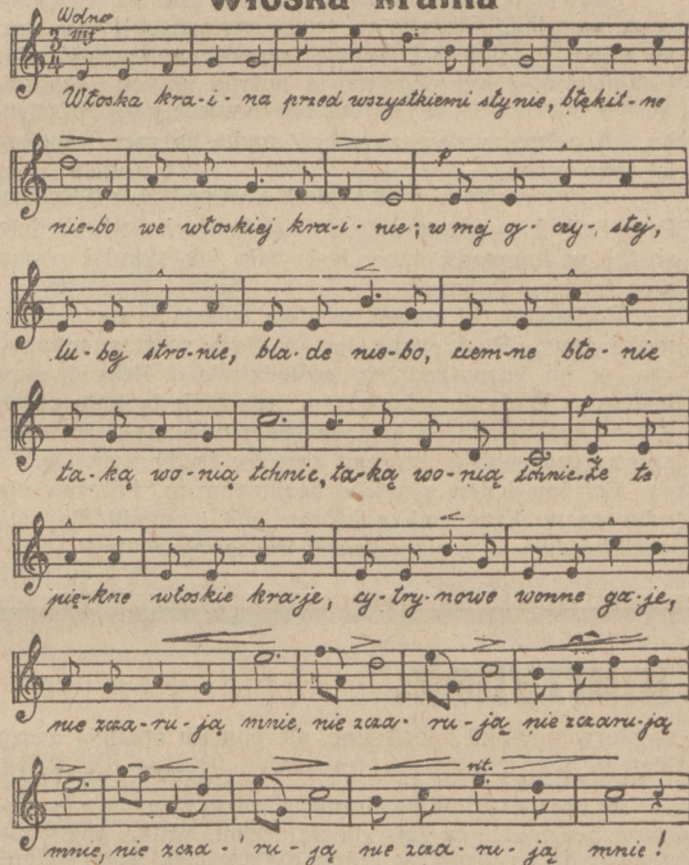 Włoska kraina
Wolno
mf
3
4
Włoska kra-i-na przed wszystkiemi słynie, błękit-ne
p
nie-bo we włoskiej kra-i-nie; w mej oj-czy-stej,
lu-bej stro-nie, bla-de nie-bo, ciem-ne bło-nie
p
ta-ką wo-nią tchnie, ta-ką wo-nią tchnie. że te
pię-kne włoskie kra-je, cy-try-nowe wonne ga-je,
nie zcza-ru-ją mnie, nie zcza-ru-ją nie zczaru-ją
rit.
mnie, nie zcza-ru-ją nie zcza-ru-ją mnie!